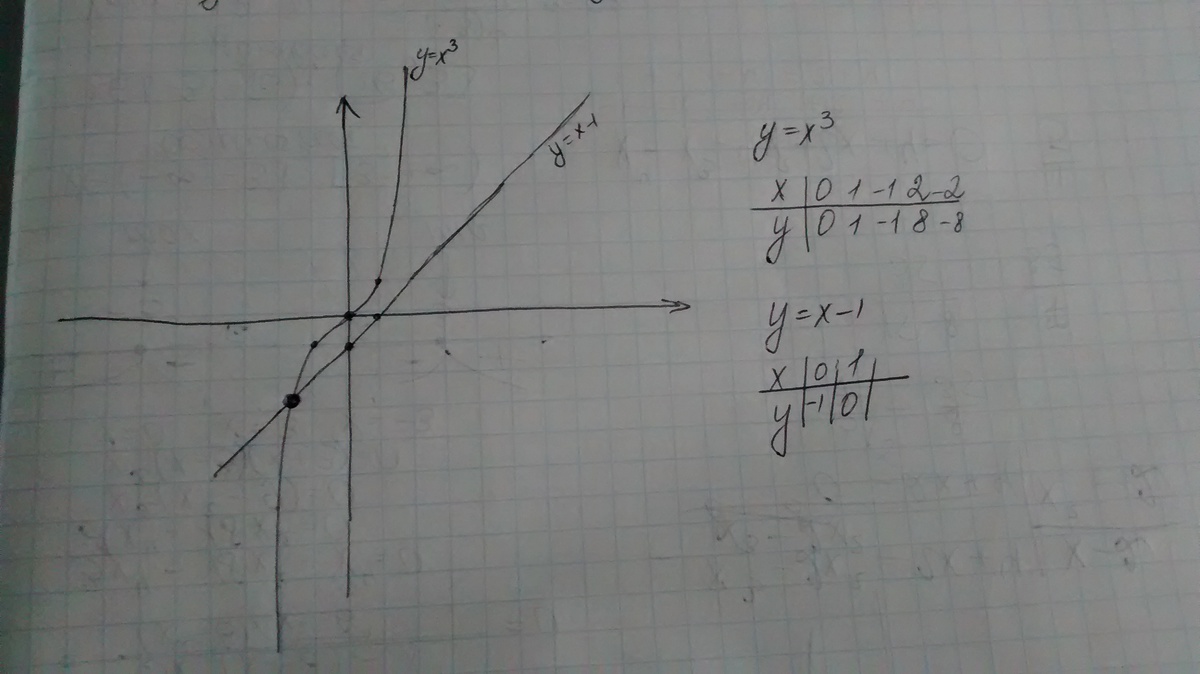 y=x³
y=x-1
y=x³
x | 0 1 -1 2 -2
y | 0 1 -1 8 -8
y=x-1
x | 0 | 1 |
y | -1 | 0 |